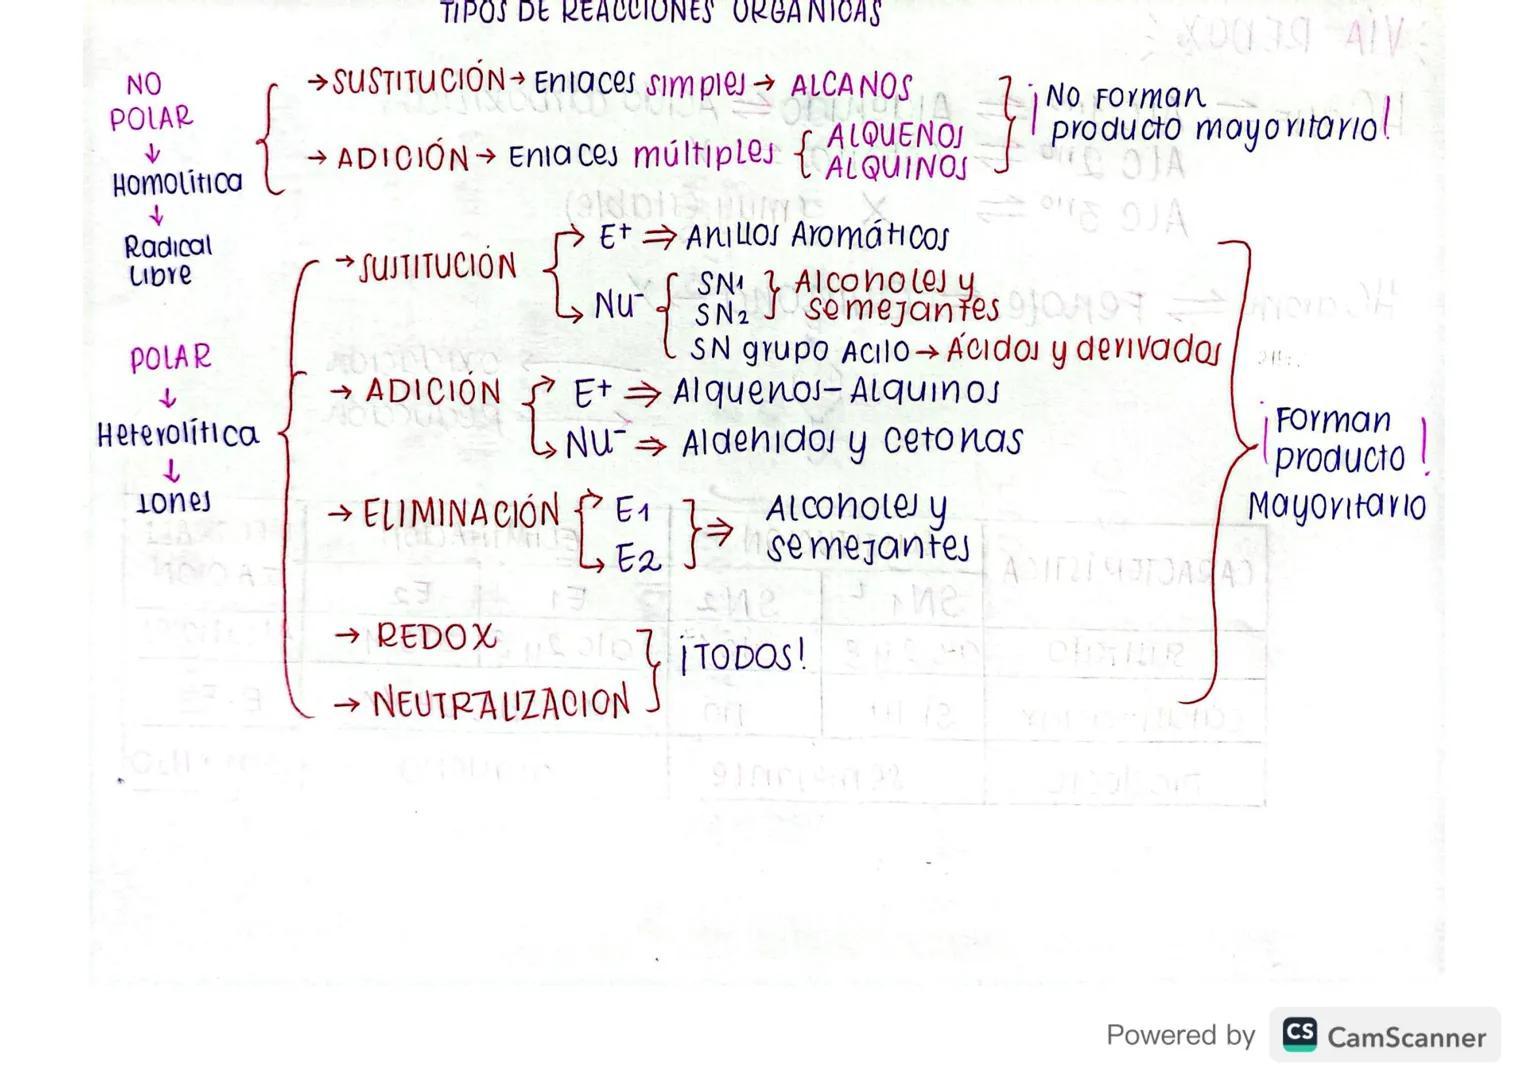 TIPOS DE REACCIONES ORGANICAS
NO
POLAR
↓
Homolítica
↓
Radical
Libre
→ SUSTITUCIÓN → Enlaces simples → ALCANOS
→ ADICIÓN → Enlaces múltiples { ALQUENOS
ALQUINOS
¡No Forman
producto mayoritario!
POLAR
↓
Heterolítica
↓
Iones
→ SUSTITUCIÓN
E+ ⇒ Anillos Aromáticos
Nu- { SN1
SN2 } Alcoholes y
semejantes
SN grupo Acilo → Ácidos y derivados
→ ADICIÓN
E+ ⇒ Alquenos-Alquinos
Nu- ⇒ Aldehidos y cetonas
→ ELIMINACIÓN
E1
E2 } ⇒ Alcoholes y
semejantes
→ REDOX
→ NEUTRALIZACION } ¡TODOS!
¡Forman
producto!
Mayoritario
Powered by CS CamScanner